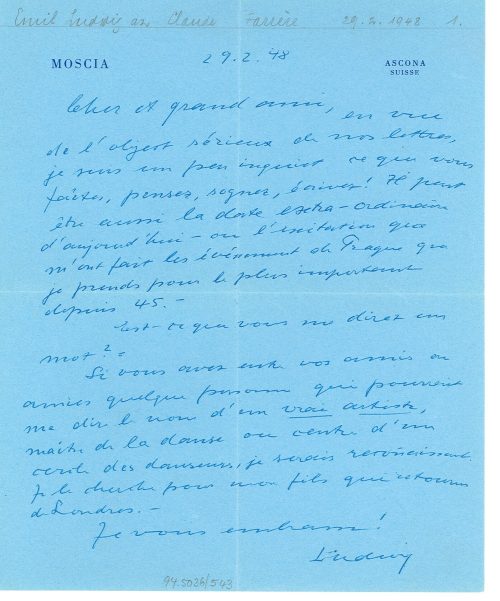 Emil Ludwig an Claude Farrère 29.2.1948 1.
MOSCIA
29.2.48
ASCONA
SUISSE
Cher et grand ami, en vue
de l'objet sérieux de nos lettres,
je suis un peu inquiet ce que vous
faites, pensez, songez, écrivez! Il peut
être aussi la date extra-ordinaire
d'aujourd'hui - ou l'excitation que
m'ont fait les événement de Prague que
je prends pour le plus important
depuis 45. -
Est-ce que vous me direz un
mot? =
Si vous avez entre vos amis ou
amies quelque personne qui pourrait
me dire le nom d'un vrai artiste,
maître de la danse ou centre d'un
cercle des danseurs, je serais reconnaissant.
Je le cherche pour mon fils qui retourne
de Londres. -
Je vous embrasse!
Ludwig
94.5026/543